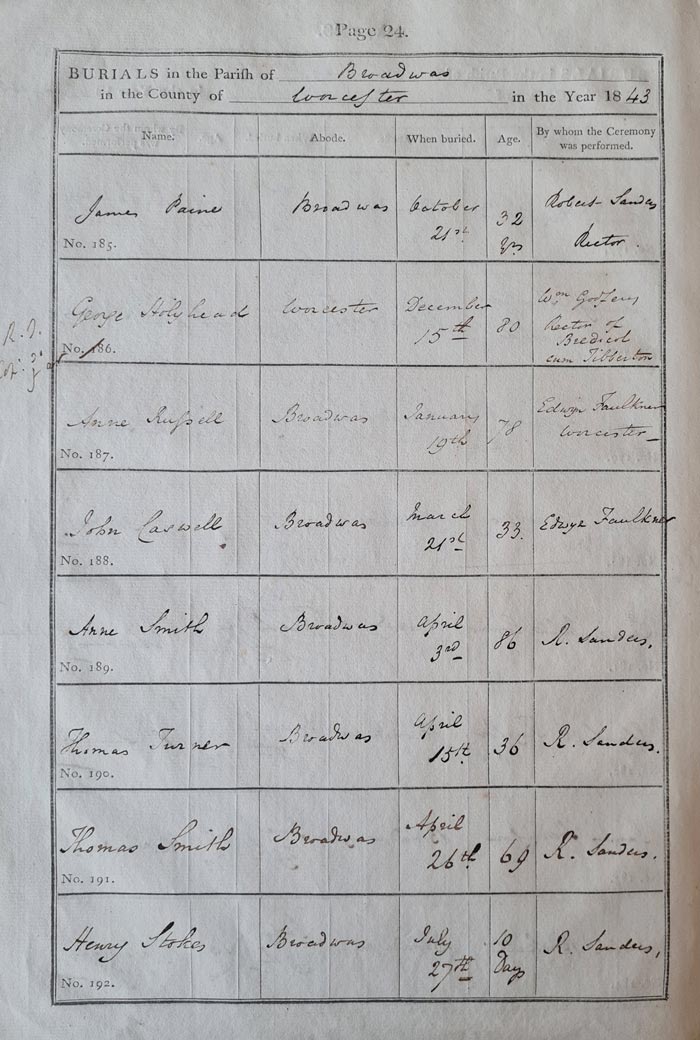 Page 24.
BURIALS in the Parish of Broadwas
in the County of Worcester in the Year 1843
Name. Abode. When buried. Age. By whom the Ceremony was performed.
James Paine Broadwas October 21st 32 yrs Robert Sanders Rector.
No. 185.
George Holyhead Worcester December 15th 80 Wm Godfery Rector of Bredicot cum Tibberton
R. D.
No. 186.
Anne Russell Broadwas January 19th 78 Edwyn Faulkner Worcester
No. 187.
John Caswell Broadwas March 21st 33. Edwyn Faulkner
No. 188.
Anne Smith Broadwas April 3rd 86 R. Sanders.
No. 189.
Thomas Turner Broadwas April 15th 36 R. Sanders.
No. 190.
Thomas Smith Broadwas April 26th 69 R. Sanders.
No. 191.
Henry Stokes Broadwas July 27th 10 Days R. Sanders,
No. 192.